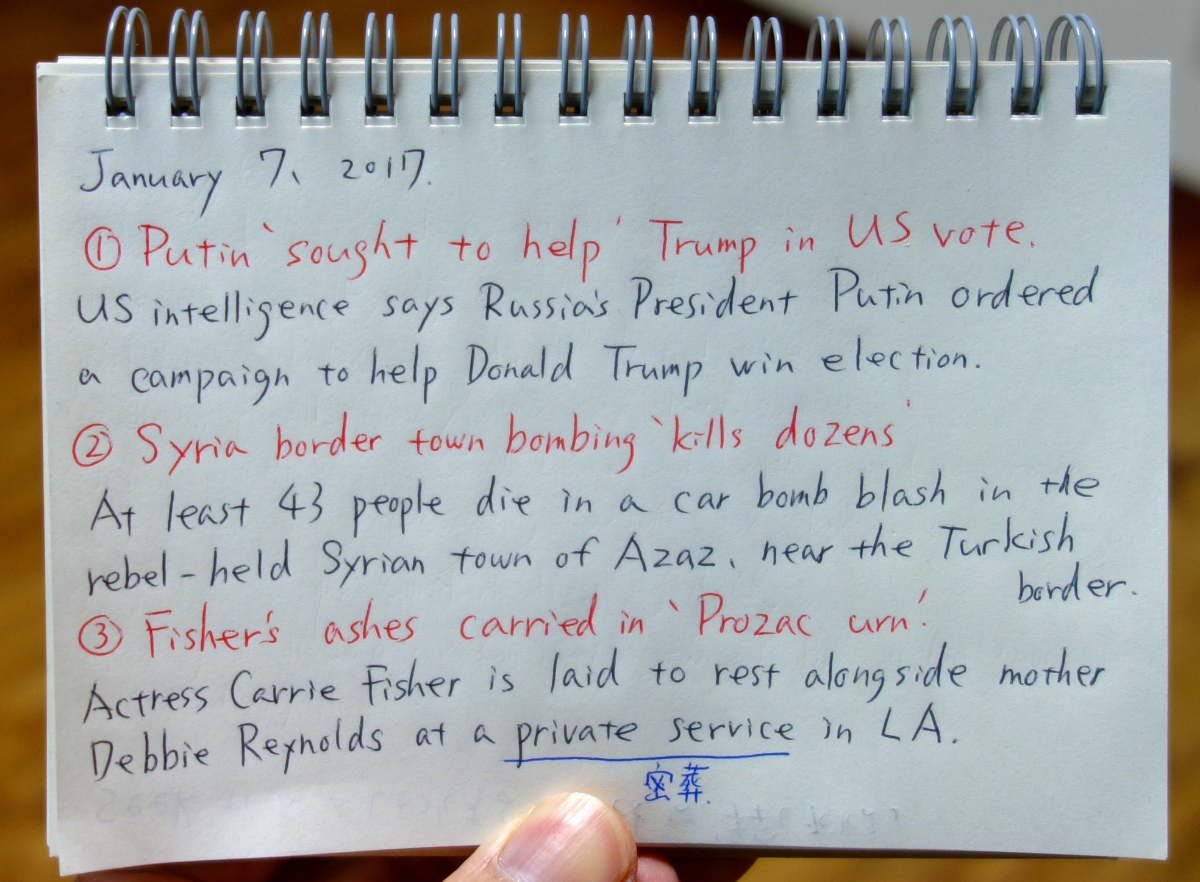 January 7, 2017.
① Putin 'sought to help' Trump in US vote.
US intelligence says Russia's President Putin ordered
a campaign to help Donald Trump win election.
② Syria border town bombing 'kills dozens'
At least 43 people die in a car bomb blash in the
rebel-held Syrian town of Azaz, near the Turkish
border.
③ Fisher's ashes carried in 'Prozac urn'.
Actress Carrie Fisher is laid to rest alongside mother
Debbie Reynolds at a private service in LA.
密葬.